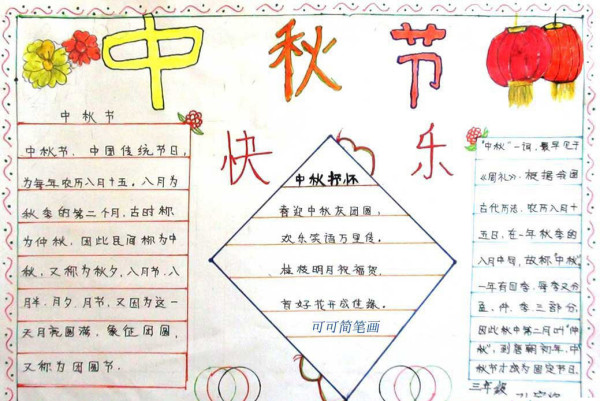 中秋节
快乐
中秋节
中秋节、中国传统节日,
为每年农历八月十五。八月为
秋季的第二个月,古时称
为仲秋,因此民间称为中
秋,又称为秋夕、八月节、八
月半、月夕、月节,又因为这一
天月亮圆满,象征团圆,
又称为团圆节.
中秋抒怀
喜迎中秋庆团圆,
欢乐笑语万里传。
桂枝明月祝福贺.
首好花开成佳缘。
可可简笔画
"中秋"一词,最早见于
《周礼》.根据我国
古代历法,农历八月十
五日,在一年秋季的
八月中旬,故称"中秋".
一年有四季,每季又分
孟、仲、季三部分,
因此秋中第二月叫"仲
秋",到唐朝初年,中
秋节才成为固定节日.
三年级